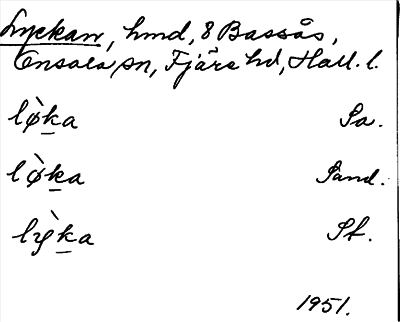 Lyckan, hmd, 8 Bassås,
Onsala sn, Fjäre hd, Hall. l.
lø̀k̲a Sa.
lø̀k̲a Sand.
lỳk̲a St.
1951.